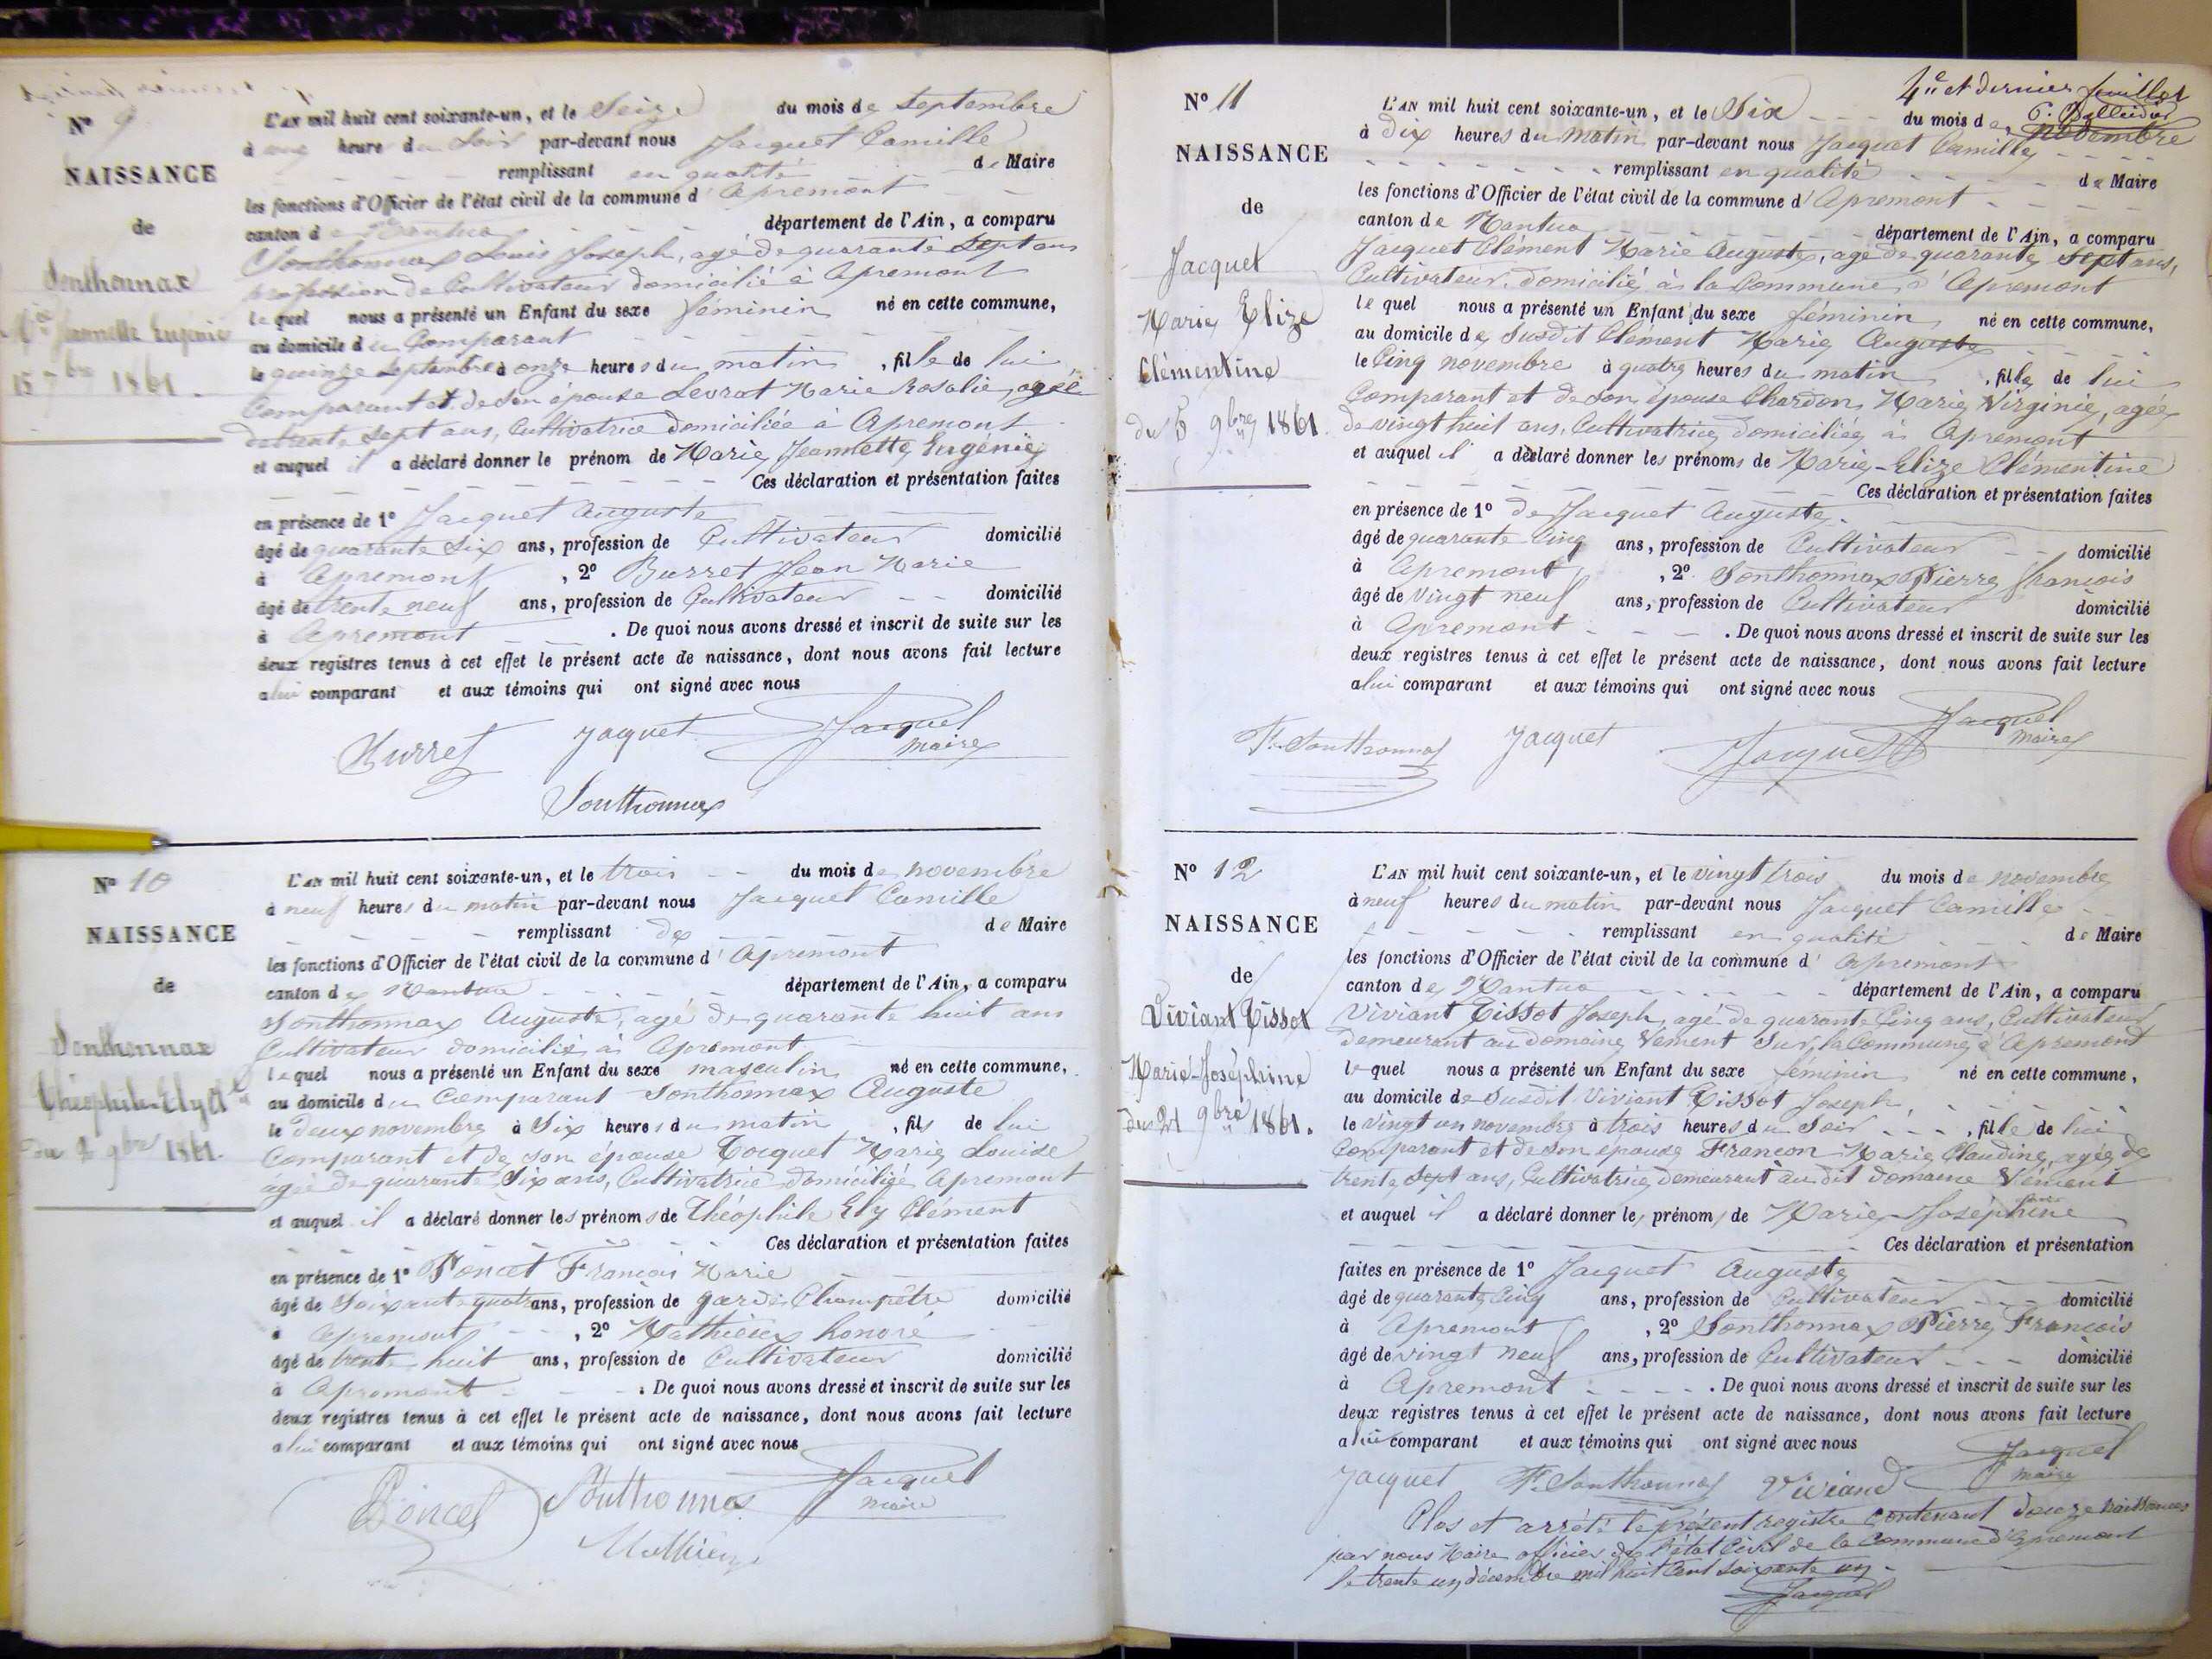 Nº 9
NAISSANCE
de
Sonthonnax
Mie Jeannette Eugénie
15 7bre 1861.
L'AN mil huit cent soixante-un, et le Seize du mois de Septembre
à une heure du Soir par-devant nous Jacquet Camille
remplissant en qualité de Maire
les fonctions d'Officier de l'état civil de la commune d'Apremont
canton de Nantua département de l'Ain, a comparu
Sonthonnax Louis Joseph, agé de quarante Sept ans
profession de Cultivateur domicilié à Apremont
lequel nous a présenté un Enfant du sexe féminin né en cette commune,
au domicile du Comparant
le quinze Septembre à onze heures du matin, fille de lui
Comparant et de Son épouse Levrat Marie Rosalie, agée
de trente Sept ans, Cultivatrice domiciliée à Apremont
et auquel il a déclaré donner le prénom de Marie Jeannette Eugénie
Ces déclaration et présentation faites
en présence de 1º Jacquet Auguste
âgé de quarante Six ans, profession de Cultivateur domicilié
à Apremont, 2º Burret Jean Marie
âgé de trente neuf ans, profession de Cultivateur domicilié
à Apremont. De quoi nous avons dressé et inscrit de suite sur les
deux registres tenus à cet effet le présent acte de naissance, dont nous avons fait lecture
a lui comparant et aux témoins qui ont signé avec nous
Burret Jacquet Jacquet
maire
Sonthonnax
Nº 10
NAISSANCE
de
Sonthonnax
Théophile Ely Clt
du 2 9bre 1861.
L'AN mil huit cent soixante-un, et le trois du mois de novembre
à neuf heures du matin par-devant nous Jacquet Camille
remplissant de Maire
les fonctions d'Officier de l'état civil de la commune d'Apremont
canton de Nantua département de l'Ain, a comparu
Sonthonnax Auguste, agé de quarante huit ans
Cultivateur domicilié à Apremont
lequel nous a présenté un Enfant du sexe masculin né en cette commune,
au domicile du Comparant Sonthonnax Auguste
le deux novembre à Six heures du matin, fils de lui
Comparant et de son épouse Tocquet Marie Louise
agée de quarante Six ans, Cultivatrice domiciliée Apremont
et auquel il a déclaré donner les prénoms de Théophile Ely Clément
Ces déclaration et présentation faites
en présence de 1º Poncet François Marie
âgé de Soixante quatre ans, profession de garde Champêtre domicilié
à Apremont, 2º Mathieux honoré
âgé de trente huit ans, profession de Cultivateur domicilié
à Apremont. De quoi nous avons dressé et inscrit de suite sur les
deux registres tenus à cet effet le présent acte de naissance, dont nous avons fait lecture
a lui comparant et aux témoins qui ont signé avec nous
Poncet Sonthonnax Jacquet
maire
Mathieux
4e et dernier feuillet
Nº 11
NAISSANCE
de
Jacquet
Marie Elize
Clémentine
du 5 9bre 1861.
L'AN mil huit cent soixante-un, et le Six du mois de novembre
à dix heures du matin par-devant nous Jacquet Camille
remplissant en qualité de Maire
les fonctions d'Officier de l'état civil de la commune d'Apremont
canton de Nantua département de l'Ain, a comparu
Jacquet Clément Marie Auguste, agé de quarante Sept ans,
Cultivateur, domicilié à la Commune d'Apremont
lequel nous a présenté un Enfant du sexe féminin né en cette commune,
au domicile de Susdit Clément Marie Auguste
le Cinq novembre à quatre heures du matin, fille de lui
Comparant et de son épouse Chardon Marie Virginie, agée
de vingt huit ans, Cultivatrice, domiciliée à Apremont
et auquel il a déclaré donner les prénoms de Marie-Elize Clémentine
Ces déclaration et présentation faites
en présence de 1º de Jacquet Auguste
âgé de quarante Cinq ans, profession de Cultivateur domicilié
à Apremont, 2º Sonthonnax Pierre françois
âgé de vingt neuf ans, profession de Cultivateur domicilié
à Apremont. De quoi nous avons dressé et inscrit de suite sur les
deux registres tenus à cet effet le présent acte de naissance, dont nous avons fait lecture
a lui comparant et aux témoins qui ont signé avec nous
F. Sonthonnax Jacquet Jacquet Jacquet
maire
Nº 12
NAISSANCE
de
Viviant Tissot
Marie-Joséphine
du 21 9bre 1861.
L'AN mil huit cent soixante-un, et le vingt trois du mois de novembre
à neuf heures du matin par-devant nous Jacquet Camille
remplissant en qualité de Maire
les fonctions d'Officier de l'état civil de la commune d'Apremont
canton de Nantua département de l'Ain, a comparu
Viviant Tissot Joseph, agé de quarante Cinq ans, Cultivateur
demeurant au domaine Vément Sur la Commune d'Apremont
lequel nous a présenté un Enfant du sexe féminin né en cette commune,
au domicile de Susdit Viviant Tissot Joseph,
le vingt un novembre à trois heures du Soir, fille de lui
Comparant et de Son épouse Francon Marie Claudine, agée de
trente Sept ans, Cultivatrice, demeurant au dit domaine Vément
et auquel il a déclaré donner le prénom de Marie Joséphine
Ces déclaration et présentation
faites en présence de 1º Jacquet Auguste
âgé de quarante Cinq ans, profession de Cultivateur domicilié
à Apremont, 2º Sonthonnax Pierre François
âgé de vingt neuf ans, profession de Cultivateur domicilié
à Apremont. De quoi nous avons dressé et inscrit de suite sur les
deux registres tenus à cet effet le présent acte de naissance, dont nous avons fait lecture
a lui comparant et aux témoins qui ont signé avec nous
Jacquet F. Sonthonnax Viviand Jacquet
maire
Clos et arrêté le présent registre Contenant douze naissances
par nous Maire officier de l'état Civil de la Commune d'Apremont
le trente un décembre mil huit Cent Soixante un.
Jacquet